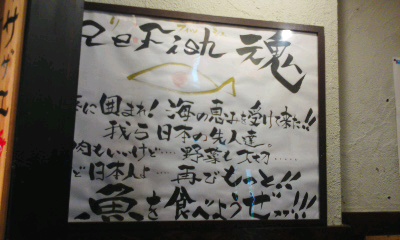 Re Fish 魂
に囲まれ！海の恵みを受けて来た!!
我ら日本の先人達。
肉もいいけど…野菜も大切……
ど日本人よ…再びもっと!!
魚を食べようぜッ!!!
サザエ